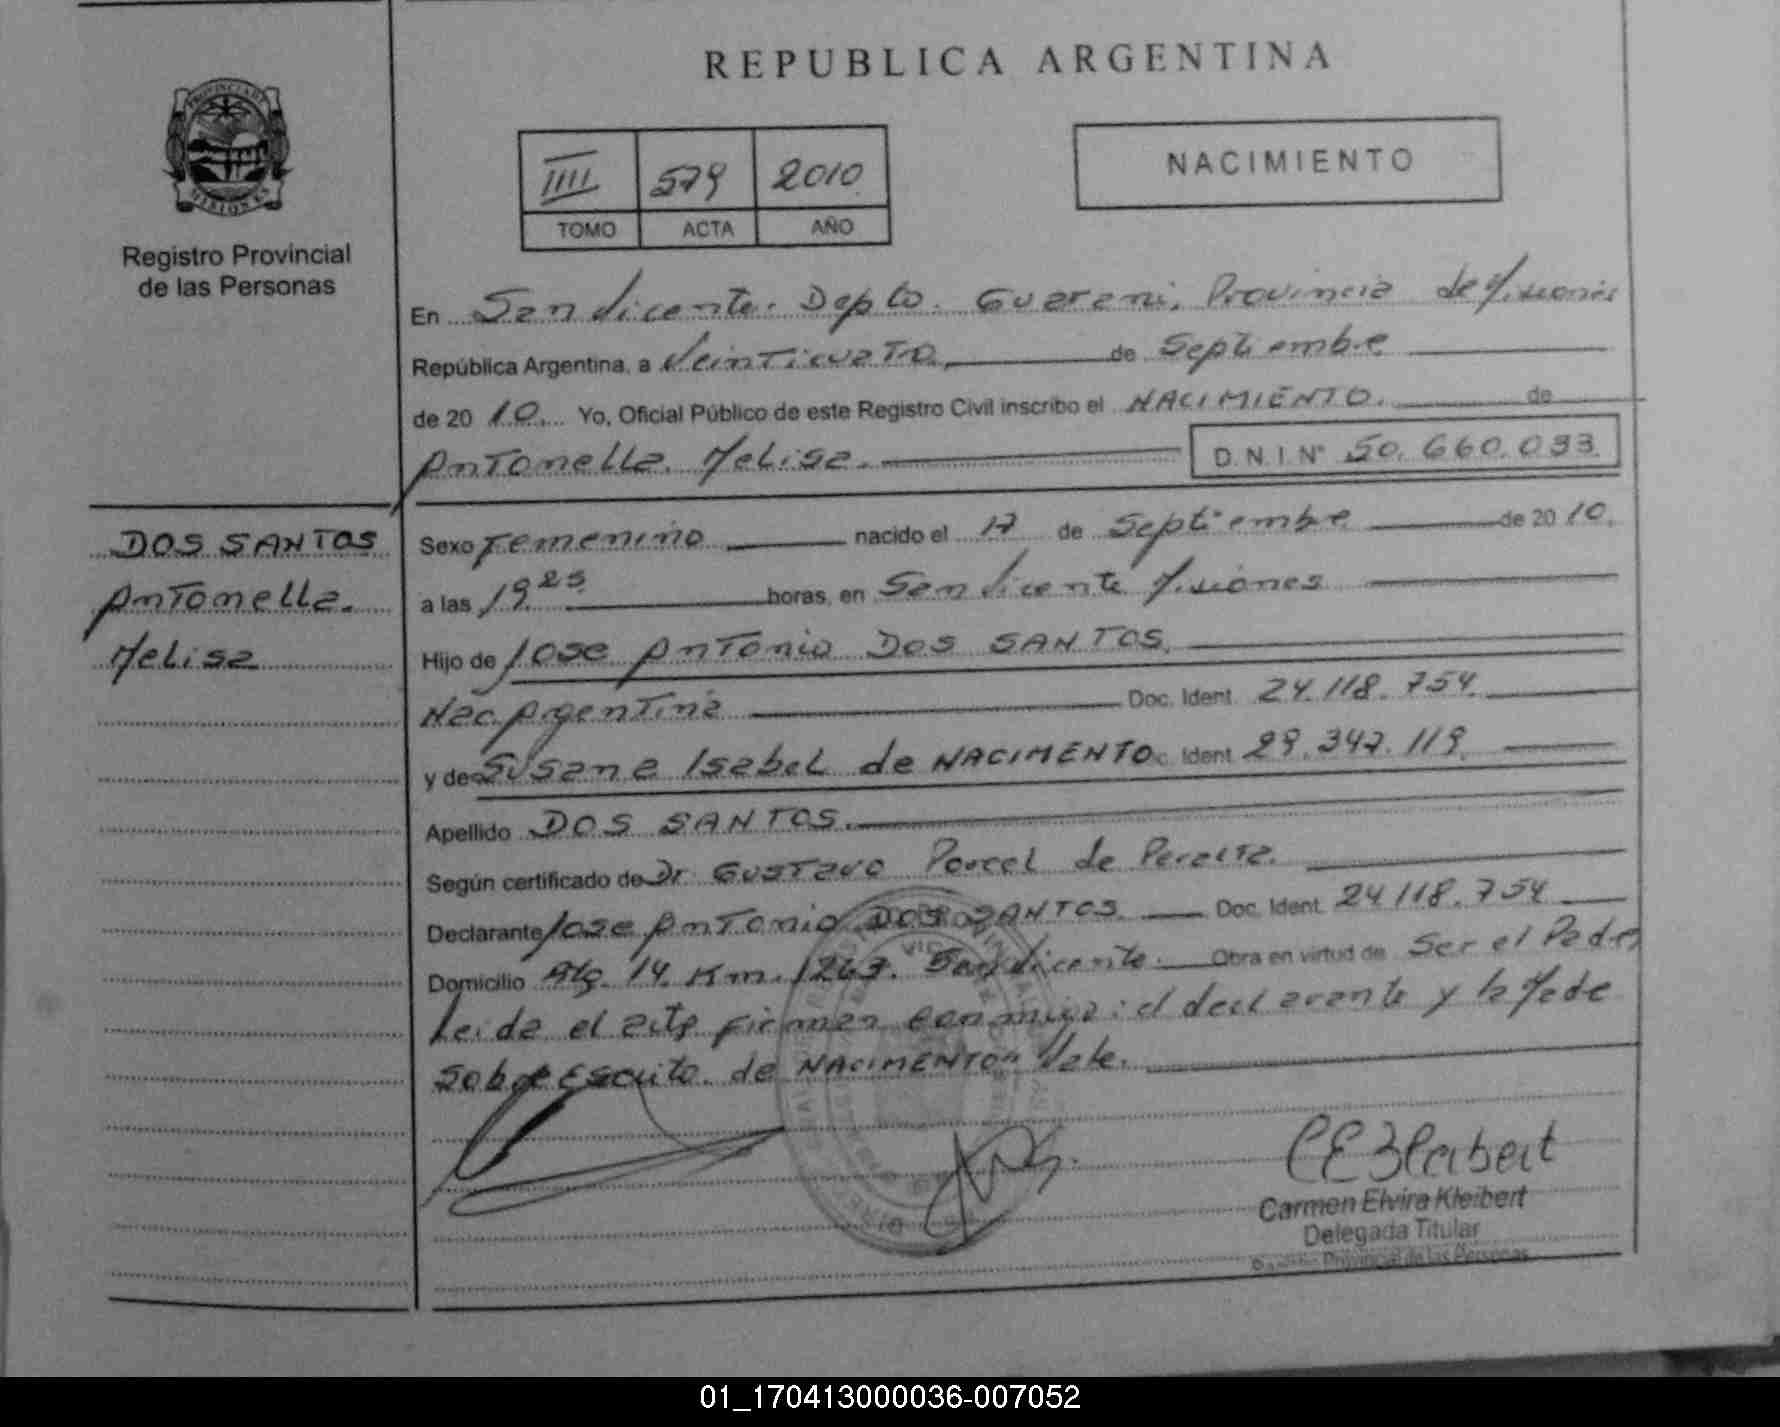 REPUBLICA ARGENTINA
PROVINCIA DE
MISIONES
Registro Provincial
de las Personas
IIII 579 2010
TOMO ACTA AÑO
NACIMIENTO
En San Vicente. Depto. Guarani, Provincia de Misiones
República Argentina, a Veinticuatro de Septiembre
de 20 10. Yo, Oficial Público de este Registro Civil inscribo el NACIMIENTO. de
Antonella Melisa. D.N.I. Nº 50.660.033.
DOS SANTOS
Antonella.
Melisa
Sexo Femenino nacido el 17 de Septiembre de 20 10.
a las 19.25 horas, en San Vicente Misiones
Hijo de Jose Antonio DOS SANTOS.
Nac. Argentina Doc. Ident. 24.118.754.
y de Susana Isabel de NACIMENTO c. Ident. 29.347.119.
Apellido DOS SANTOS.
Según certificado de Dr Gustavo Porcel de Peralta.
Declarante Jose Antonio DOS SANTOS Doc. Ident. 24.118.754
Domicilio Rta. 14. Km. 1267. San Vicente. Obra en virtud de Ser el Padre
Leida el acta firman conmigo: el declarante y la Made
Sobre Escrito. de NACIMENTO" Vale.
CEKleibert
Carmen Elvira Kleibert
Delegada Titular
Provincial de las Personas
01_170413000036-007052